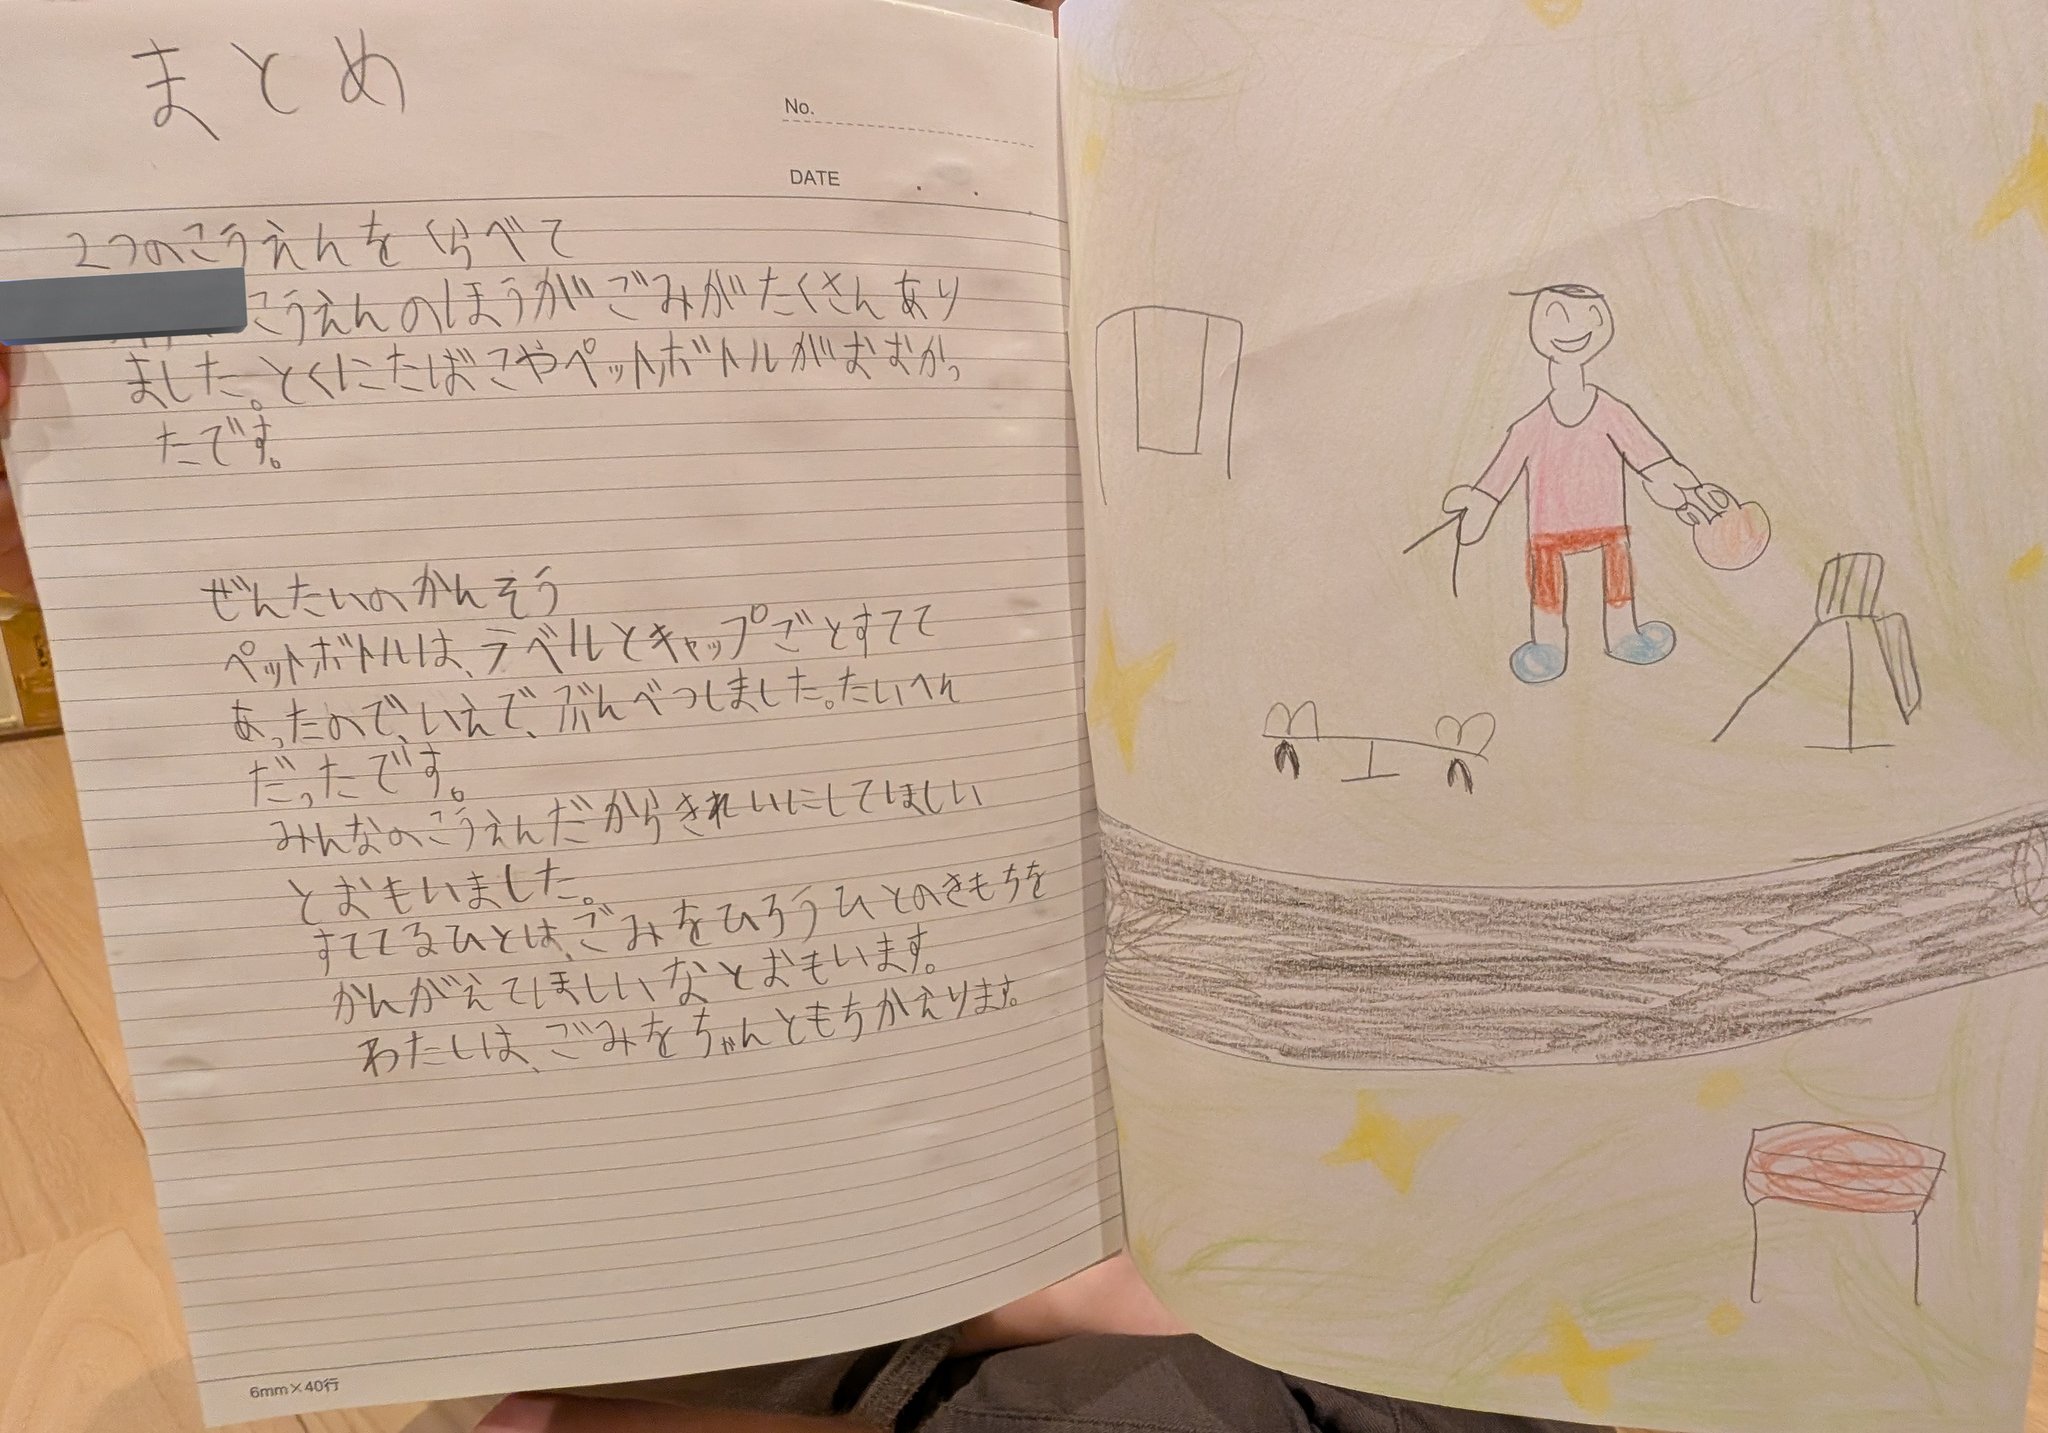 まとめ
No.
DATE . .
2つのこうえんをくらべて
こうえんのほうがごみがたくさんあり
ました。とくにたばこやペットボトルがおおかっ
たです。
ぜんたいのかんそう
ペットボトルは、ラベルとキャップごとすてて
あったので、いえで、ぶんべつしました。たいへん
だったです。
みんなのこうえんだからきれいにしてほしい
とおもいました。
すててるひとは、ごみをひろうひとのきもちを
かんがえてほしいなとおもいます。
わたしは、ごみをちゃんともちかえります。
6mm×40行